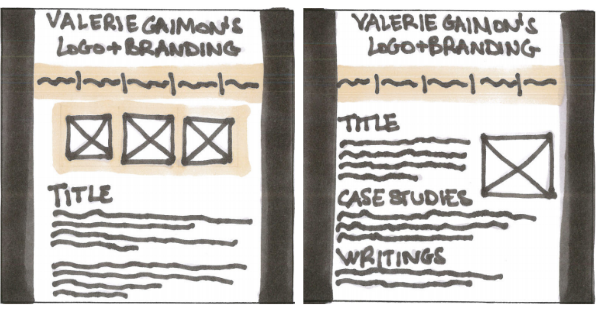 VALERIE GAIMON'S
LOGO+BRANDING
TITLE
VALERIE GAIMON'S
LOGO+BRANDING
TITLE
CASE STUDIES
WRITINGS